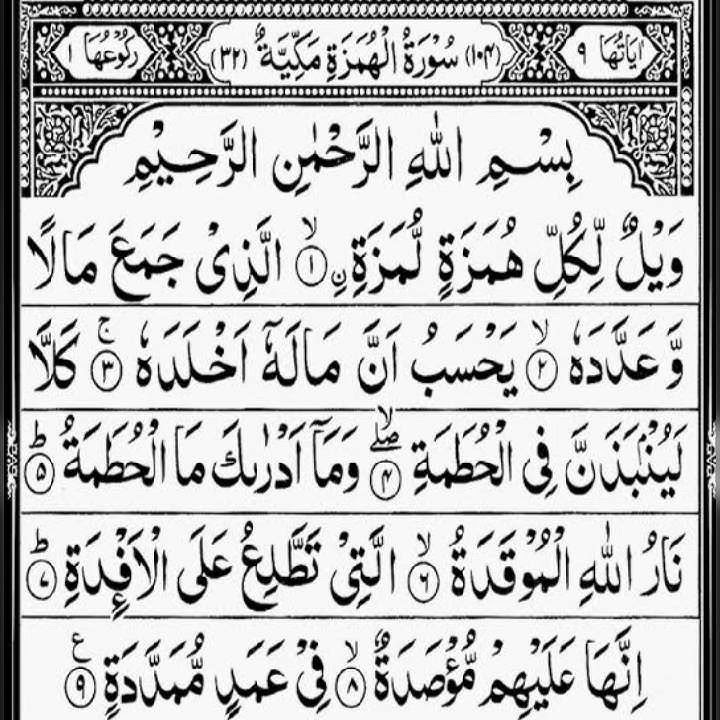 اٰيَاتُهَا ٩ (١٠٤) سُوْرَةُ الْهُمَزَةِ مَكِّيَّةٌ (٣٢) رُكُوْعُهَا ١
بِسْمِ اللّٰهِ الرَّحْمٰنِ الرَّحِيْمِ
وَيْلٌ لِّكُلِّ هُمَزَةٍ لُّمَزَةِ ۙ۝١ نِ الَّذِىْ جَمَعَ مَالًا
وَّعَدَّدَهٗ ۙ۝٢ يَحْسَبُ اَنَّ مَالَهٗۤ اَخْلَدَهٗ ۚ۝٣ كَلَّا
لَيُنْۢبَذَنَّ فِى الْحُطَمَةِ ۖۙ۝٤ وَمَاۤ اَدْرٰىكَ مَا الْحُطَمَةُ ؕ۝٥
نَارُ اللّٰهِ الْمُوْقَدَةُ ۙ۝٦ الَّتِىْ تَطَّلِعُ عَلَى الْاَفْـِٕدَةِ ؕ۝٧
اِنَّهَا عَلَيْهِمْ مُّؤْصَدَةٌ ۙ۝٨ فِىْ عَمَدٍ مُّمَدَّدَةٍ ۝٩ ع